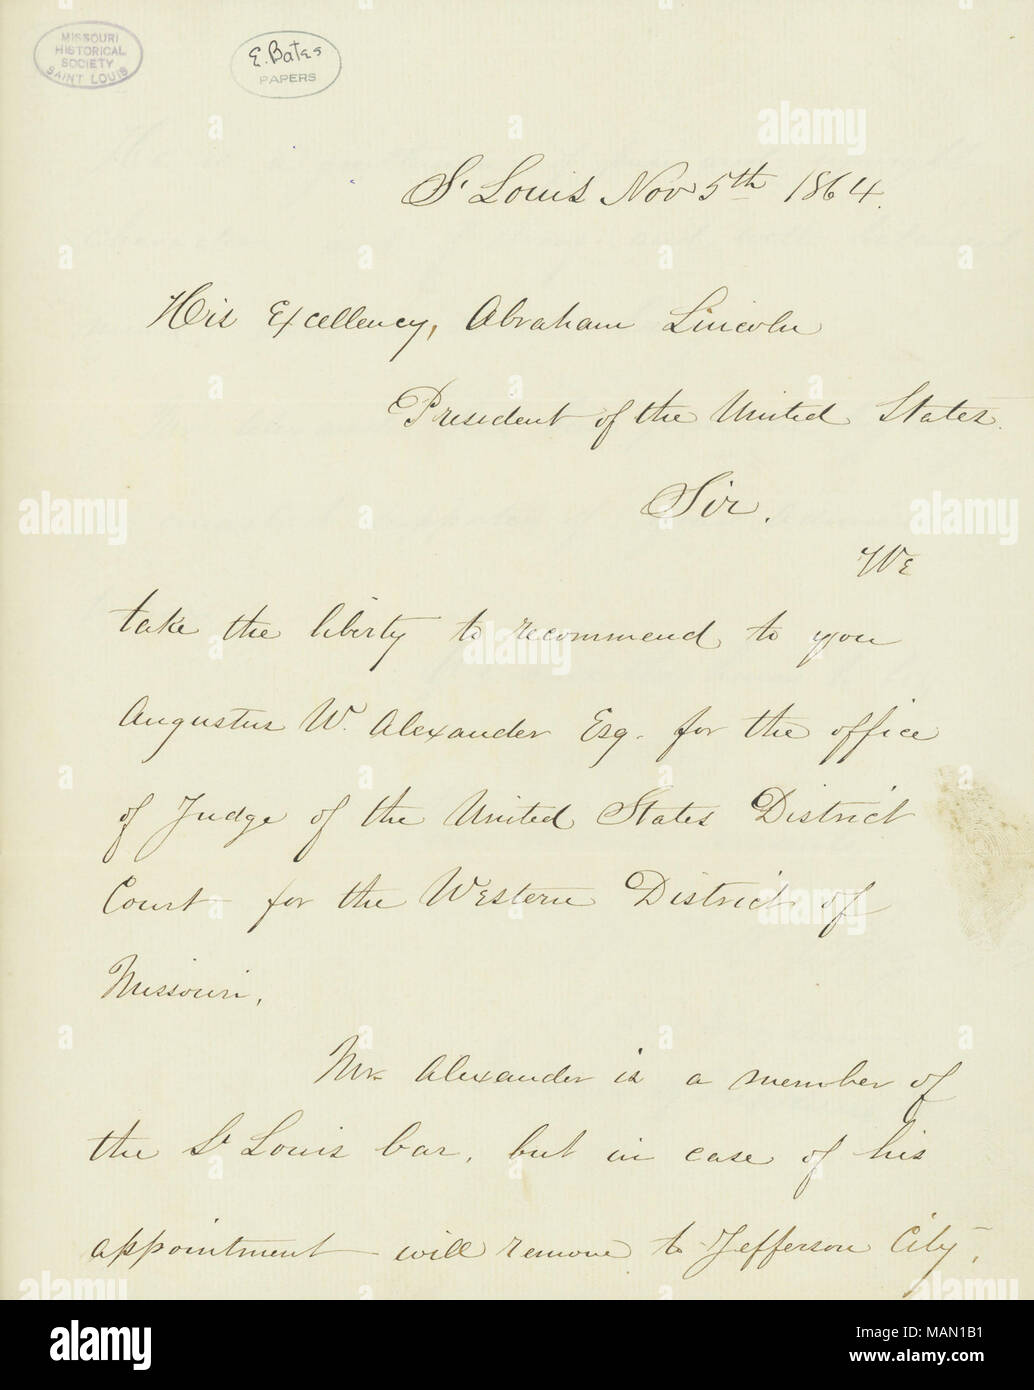 MISSOURI
HISTORICAL
SOCIETY
SAINT LOUIS
E. Bates
PAPERS
St Louis Nov 5th 1864.
His Excellency, Abraham Lincoln
President of the United States.
Sir,
We
take the liberty to recommend to you
Augustus W. Alexander Esq. for the office
of Judge of the United States District
Court for the Western District of
Missouri.
Mr Alexander is a member of
the St Louis bar, but in case of his
appointment will remove to Jefferson City,
alamy
Image ID: MAN1B1
www.alamy.com